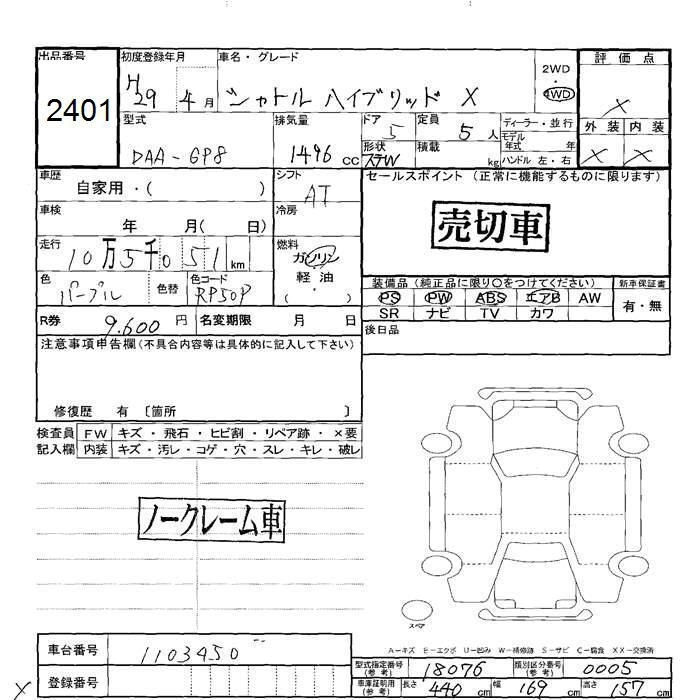 出品番号 初度登録年月 車名・グレード 2WD 評価点
2401 H29 4月 シャトル ハイブリッド X 4WD X
型式 排気量 ドア 定員 ディーラー・並行 外装 内装
DAA-GP8 1496 cc 5 5人 モデル年式 年 X X
形状 積載 kg ハンドル 左・右
ステW
車歴 シフト セールスポイント (正常に機能するものに限ります)
自家用・( ) AT
車検 冷房 売切車
年 月( 日)
走行 燃料
10万5千051 km ガソリン
軽油
( ・ )
色 色替 色コード 装備品 (純正品に限り○をつけてください) 新車保証書
パープル RP50P PS PW ABS エアB AW 有・無
SR ナビ TV カワ
R券 9.600円 名変期限 月 日 後日品
注意事項申告欄(不具合内容等は具体的に記入して下さい)
修復歴 有 〔箇所 〕
検査員 FW キズ・飛石・ヒビ割・リペア跡・×要
記入欄 内装 キズ・汚レ・コゲ・穴・スレ・キレ・破レ
ノークレーム車
スペア
A－キズ E－エクボ U－凹み W－補修跡 S－サビ C－腐食 XX－交換済
車台番号 1103450
型式指定番号(参考) 18076 類別区分番号(参考) 0005
登録番号
車庫証明用(参考) 長さ 440 cm 幅 169 cm 高さ 157 cm
X